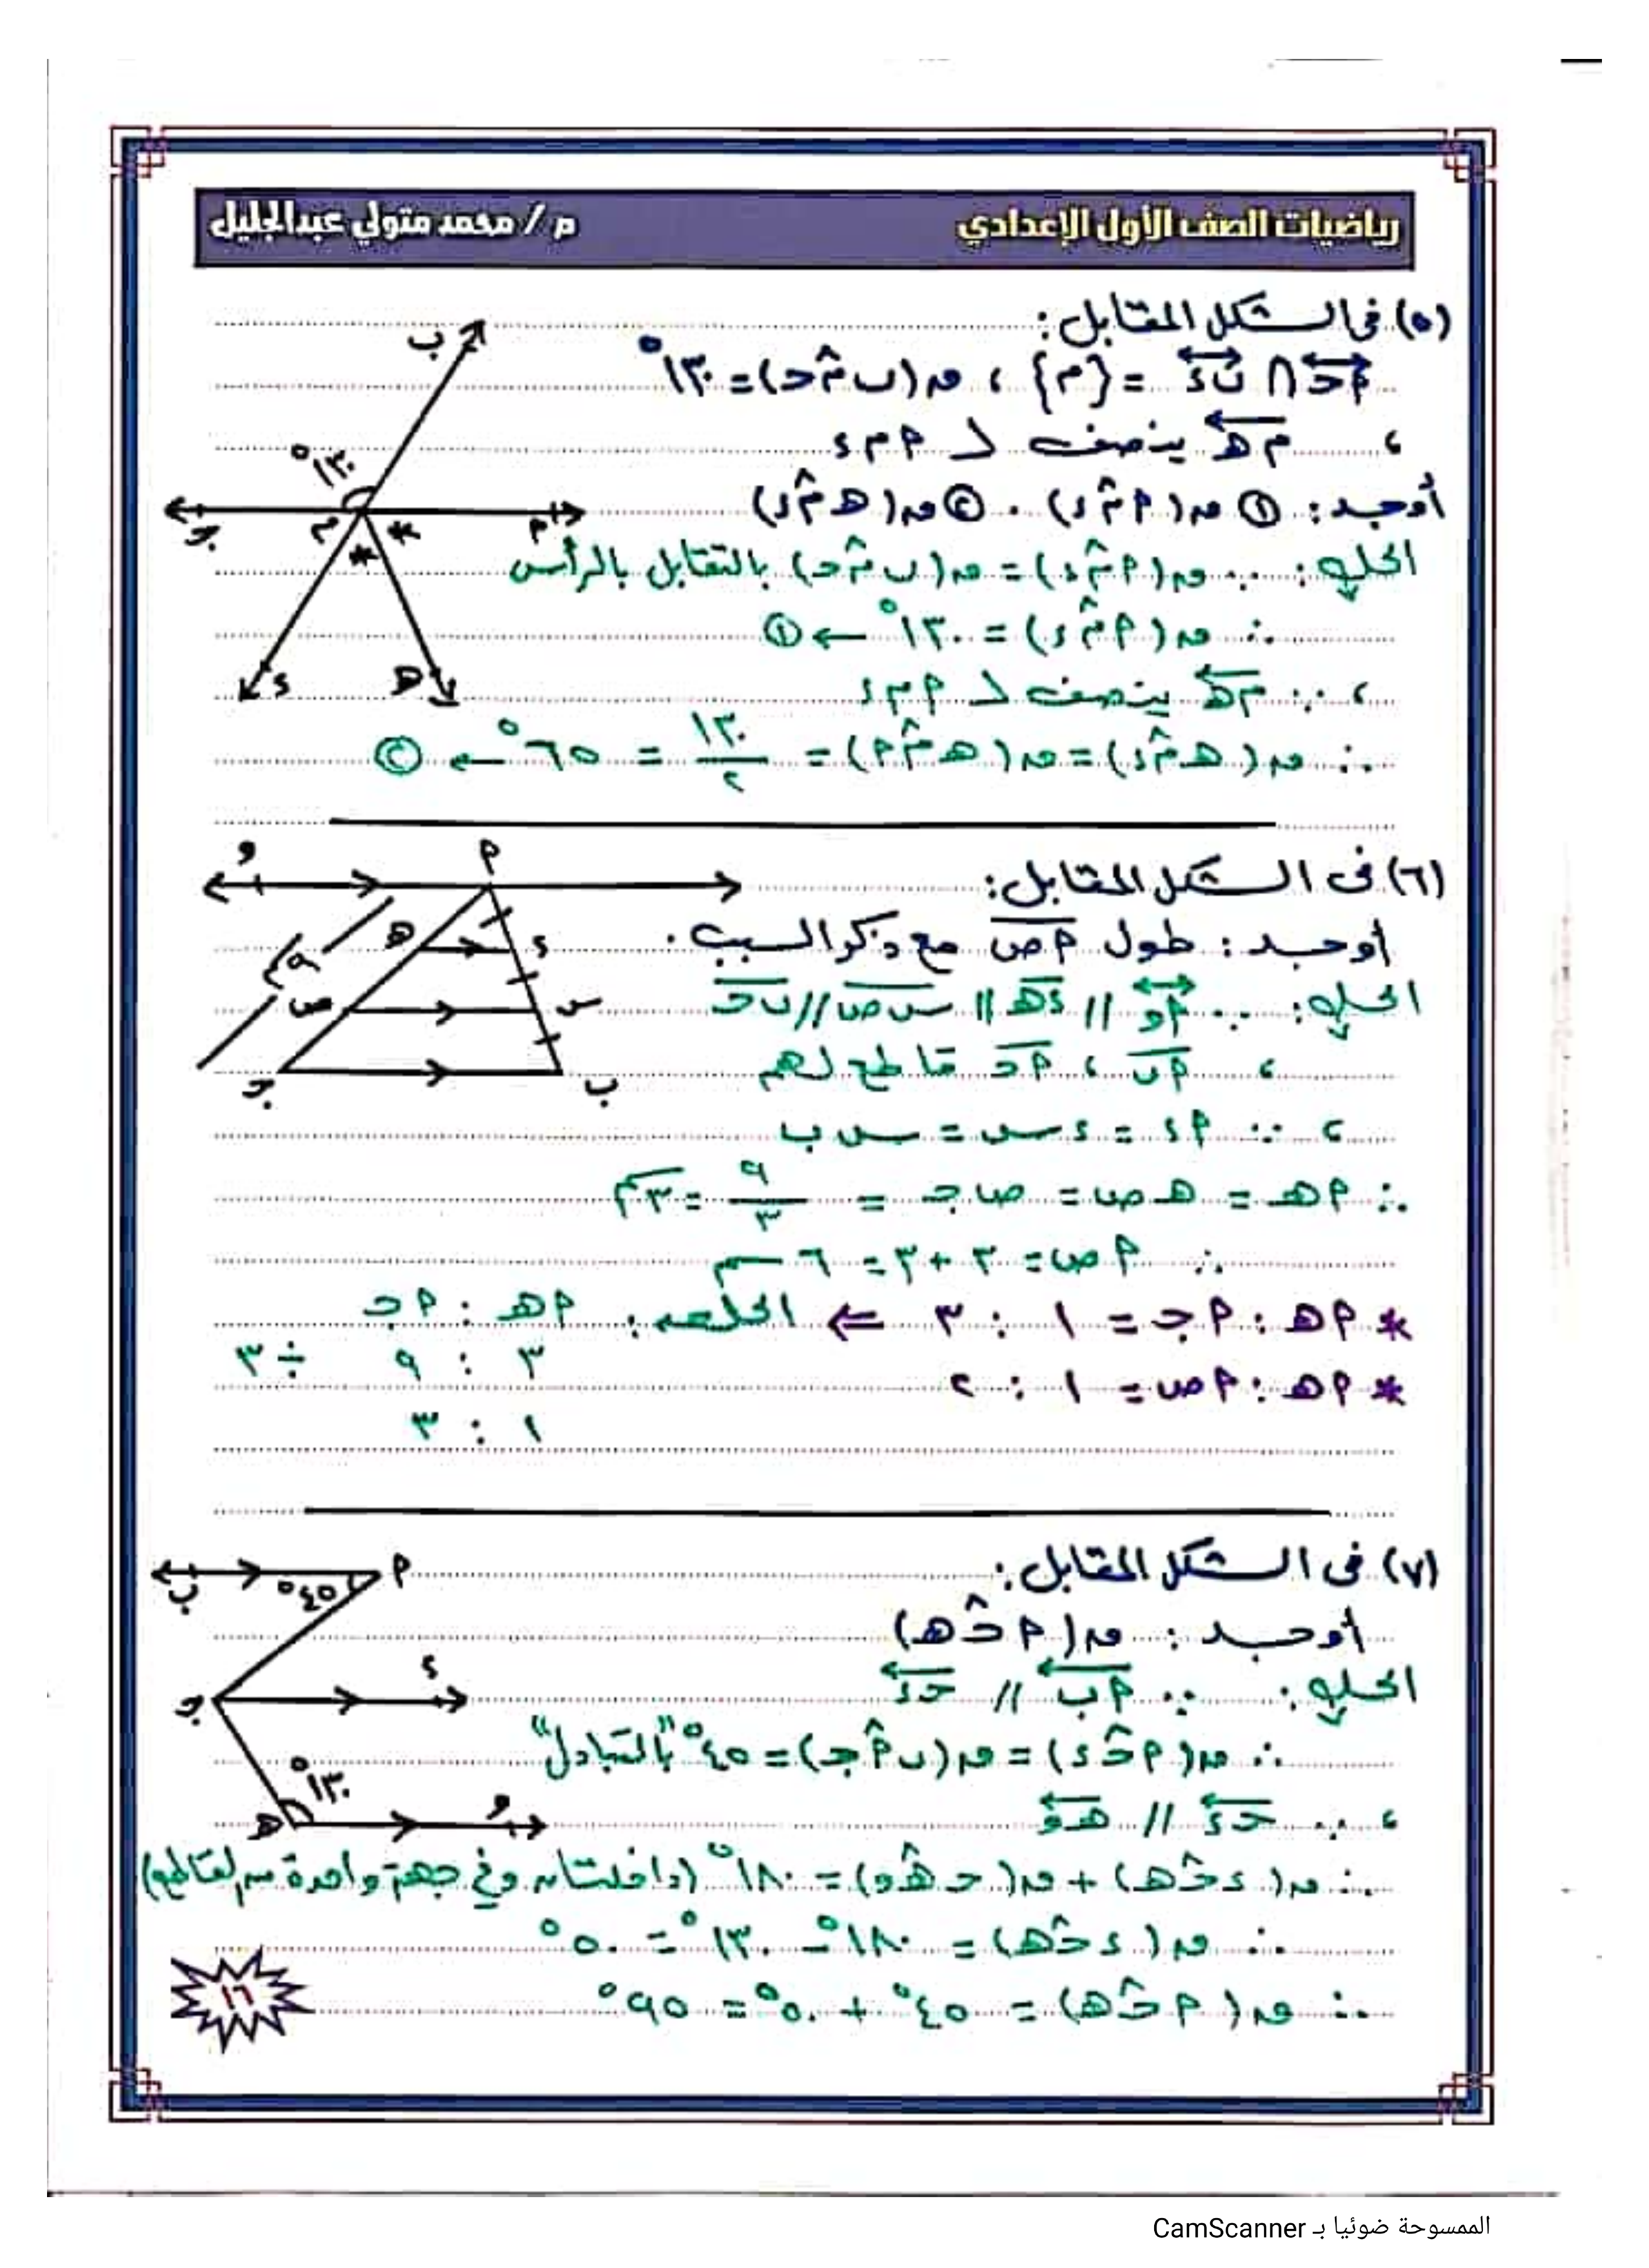 رياضيات الصف الأول الإعدادي
م / محمد متولي عبدالجليل
(٥) فى الشكل المقابل:
أحـ ∩ بء = {م} ، ق(ب م حـ) = ١٣٠°
، مهـ ينصف ∠ أ م ء
أوجد: ① ق(أ م ء) . ② ق(هـ م ء)
الحل: ∵ ق(أ م ء) = ق(ب م حـ) بالتقابل بالرأس
∴ ق(أ م ء) = ١٣٠° ← ①
، ∵ مهـ ينصف ∠ أ م ء
∴ ق(هـ م ء) = ق(هـ م أ) = ١٣٠/٢ = ٦٥° ← ②
ب
١٣٠°
جـ
م
أ
ء
هـ
(٦) فى الشكل المقابل:
أوجد: طول أص مع ذكر السبب.
الحل: ∵ أو // ءهـ // س ص // بحـ
، أب ، أحـ قاطع لهم
، ∵ أء = ءس = س ب
∴ أهـ = هـ ص = ص جـ = ٩/٣ = ٣سم
∴ أص = ٣ + ٣ = ٦ سم
* أهـ : أجـ = ١ : ٣ ⇐ الخلاصة: أهـ : أحـ
٣ : ٩ ÷ ٣
* أهـ : أص = ١ : ٢
١ : ٣
و
أ
هـ
ء
٩سم
ص
س
جـ
ب
(٧) فى الشكل المقابل:
أوجد: ق(أ حـ هـ)
الحل: ∵ أب // حـء
∴ ق(أ حـ ء) = ق(ب أ جـ) = ٤٥° "بالتبادل"
، ∵ حـء // هـو
∴ ق(ء حـ هـ) + ق(حـ هـ و) = ١٨٠° (داخلتان وفي جهة واحدة من القاطع)
∴ ق(ء حـ هـ) = ١٨٠° - ١٣٠° = ٥٠°
∴ ق(أ حـ هـ) = ٤٥° + ٥٠° = ٩٥°
ب
٤٥°
أ
ء
جـ
١٣٠°
هـ
و
١٦
الممسوحة ضوئيا بـ CamScanner